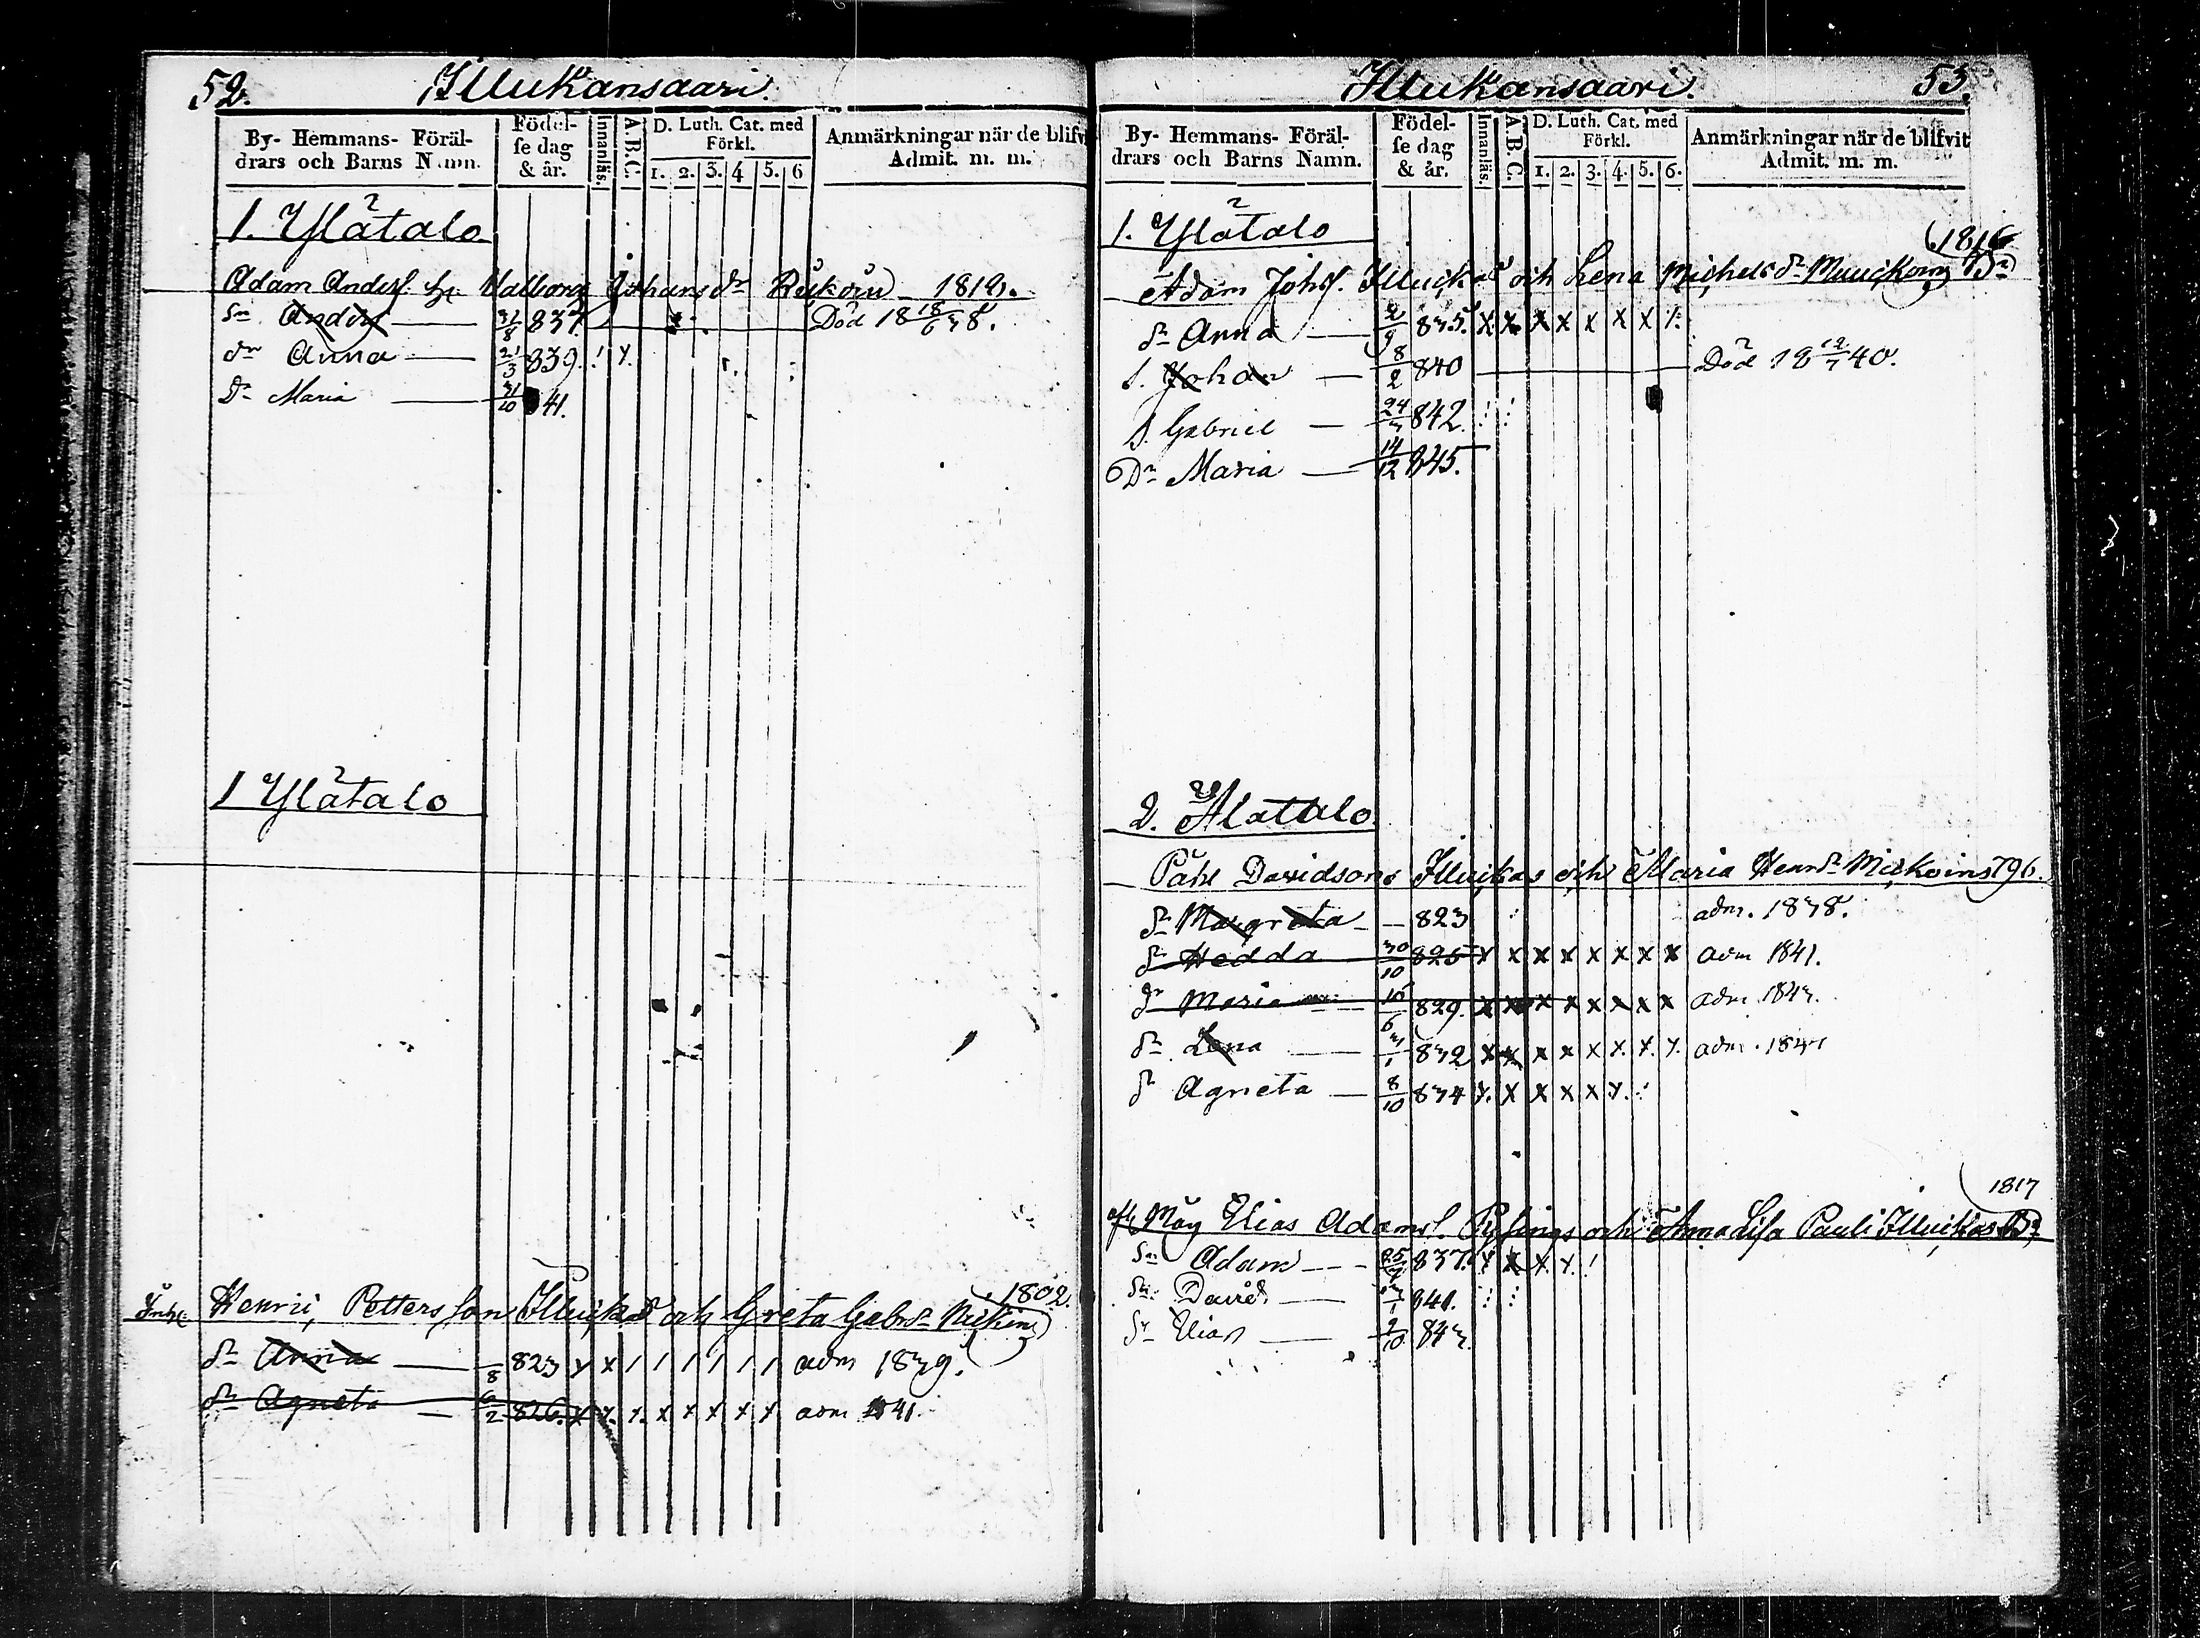 52. Illukansaari.
By- Hemmans- Föräl-
drars och Barns Namn.
Födel-
se dag
& år.
Innanläs.
A.B.C.
D. Luth. Cat. med
Förkl.
1. 2. 3. 4 5. 6
Anmärkningar när de blifv
Admit. m. m.
1. Ylätalo
Adam Anders. Valborg Johans dr 1819.
Sn Anders 31/8 837. Död 18 18/6 38.
dr Anna 21/3 839.
Dr Maria 31/10 841.
1 Ylätalo
Henric Petters son Illuikas och Greta Gabr. dr 1802.
dr Anna /8 823 x x / / / / / / adm 1839.
dr Agneta 6/2 826. x x. x. x x x x x adm 1841.
Illukansaari. 53.
By- Hemmans- Föräl-
drars och Barns Namn.
Födel-
se dag
& år.
Innanläs.
A.B.C.
D. Luth. Cat. med
Förkl.
1. 2. 3. 4. 5. 6.
Anmärkningar när de blifvit
Admit. m. m.
1. Ylätalo
1816
Adam Johs. Illuikas och Lena Michels dr Muuikoinz
dr Anna 2/9 835. x x x x x x x
s. Johan 8/2 840 Död 18 12/7 40.
s. Gabriel 24/3 842.
Dr Maria 14/12 845.
2. Alatalo
Påhl Davidson Illuikas och Maria Henr. dr 796.
dr Margreta 823 adm. 1838.
dr Hedda 30/10 825 x x x x x x x x adm 1841.
dr Maria 10/6 829. x x x x x x x x adm 1843.
dr Lena 832 x x x x x x. x. x. adm.
dr Agneta 8/10 834 x. x x x x x.
1817
Måg Elias Adams. och Anna Lisa Pauli Illuikas Dr
Sn Adam 25/7 837. x x x. x. !
Sn David 841.
Sn Elias 2/10 843.